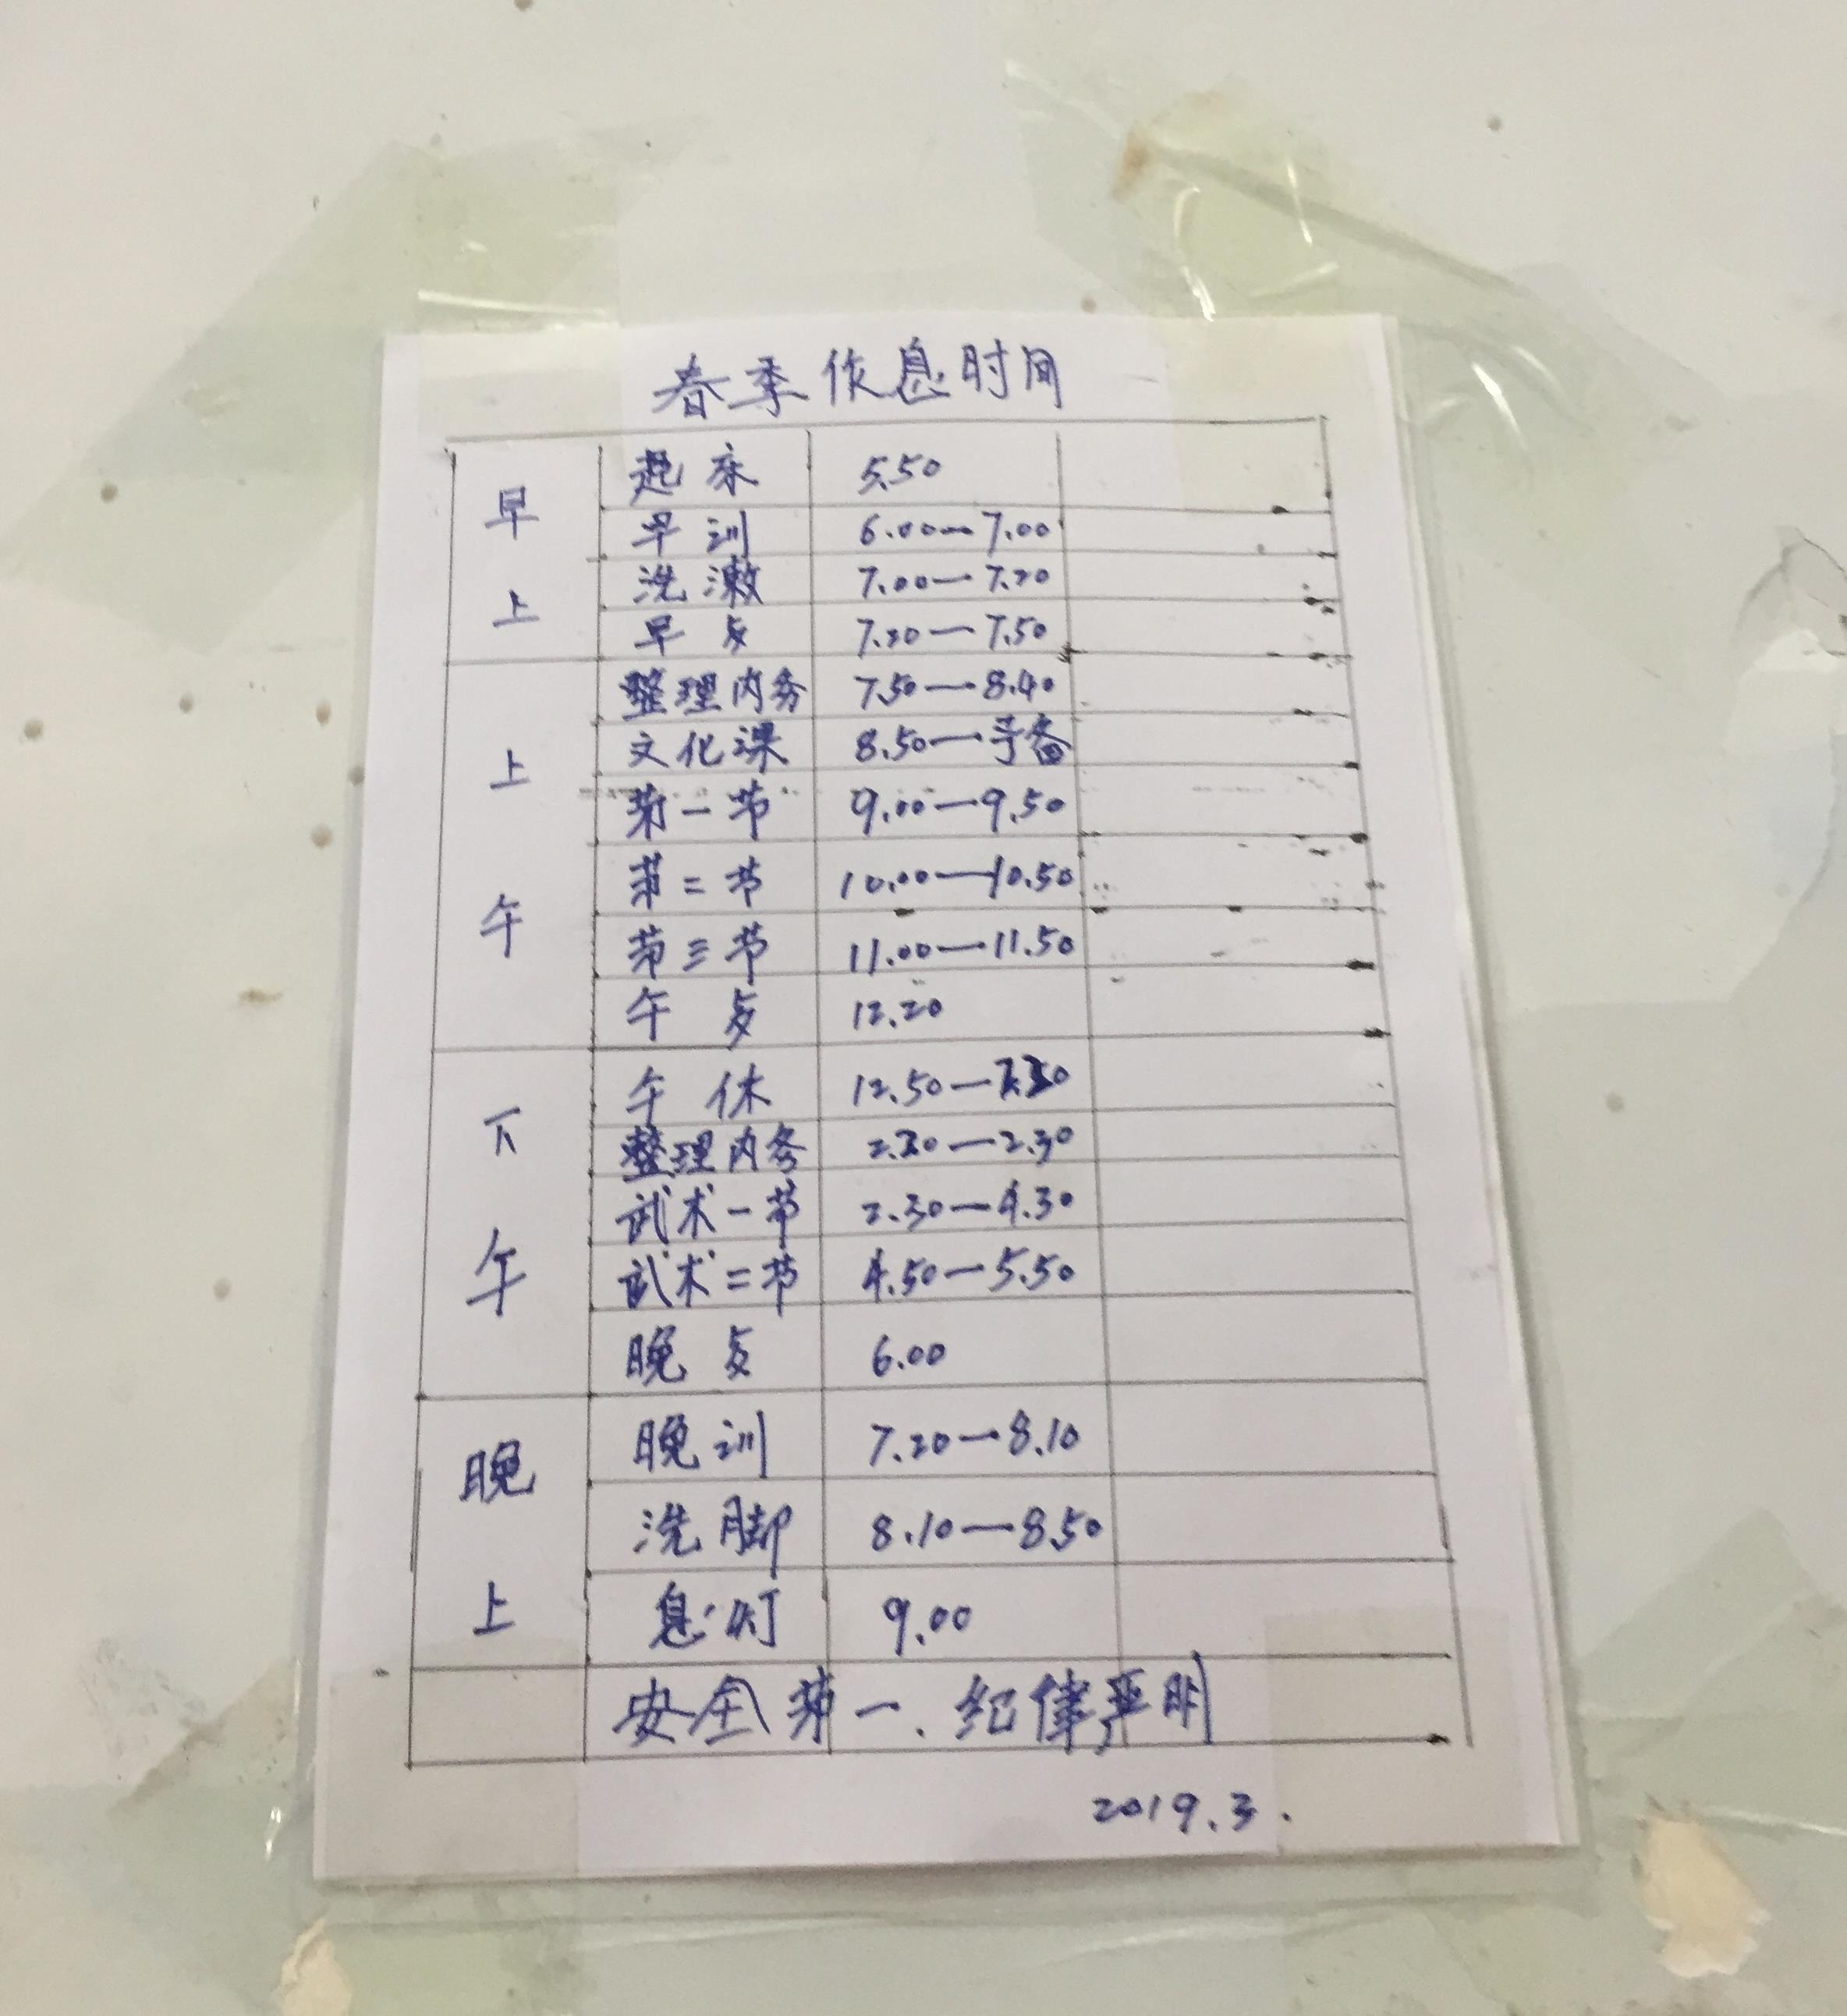 春季作息时间
早上
起床 5.50
早训 6.00—7.00
洗漱 7.00—7.20
早点 7.20—7.50
上午
整理内务 7.50—8.40
文化课 8.50—予备
第一节 9.00—9.50
第二节 10.00—10.50
第三节 11.00—11.50
午点 12.20
下午
午休 12.50—
整理内务 2.20—2.30
武术一节 2.30—4.30
武术二节 4.50—5.50
晚点 6.00
晚上
晚训 7.20—8.10
洗脚 8.10—8.50
息灯 9.00
安全第一、纪律严明
2019.3.